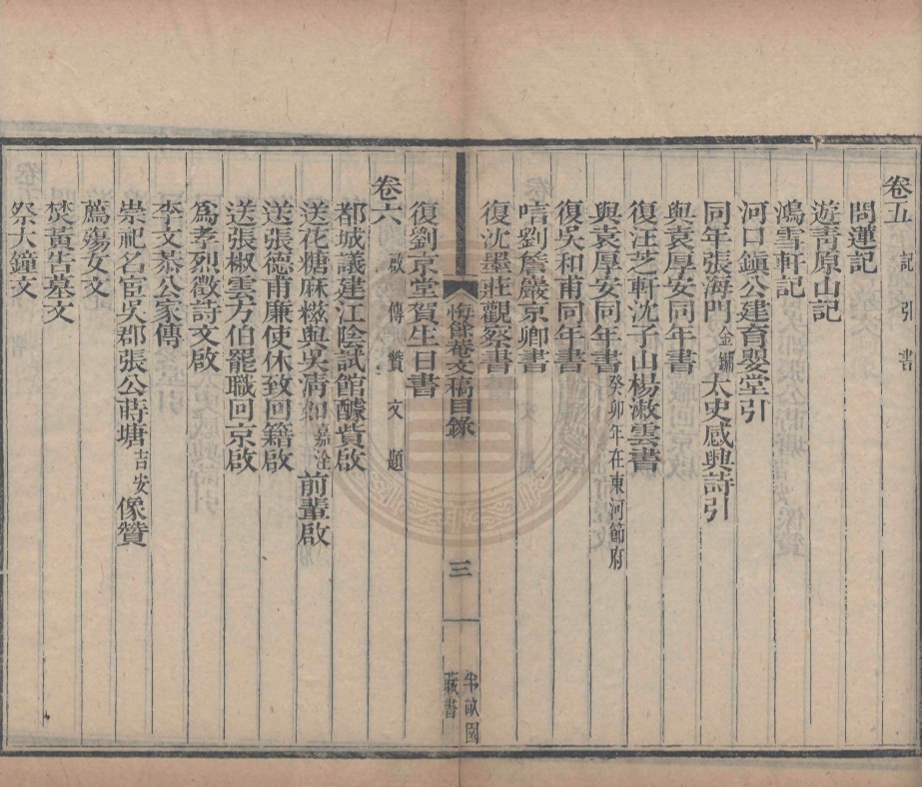 卷五 記 引 書
問蓮記
遊靑原山記
鴻雪軒記
河口鎭公建育嬰堂引
同年張海門金鏞太史感興詩引
與袁厚安同年書
復汪芝軒沈子山楊漱雲書
與袁厚安同年書癸卯年在東河節府
復吳和甫同年書
唁劉詹巖京卿書
復沈墨莊觀察書
悔餘菴文稿目錄
三
半畝園
藏書
復劉京堂賀生日書
卷六 啟 傳 贊 文 題
都城議建江陰試館醵貲啟
送花糖麻糍與吳淸如嘉淦前輩啟
送張德甫廉使休致回籍啟
送張椒雲方伯罷職回京啟
爲孝烈徵詩文啟
李文恭公家傳
崇祀名宦吳郡張公蒔塘吉安像贊
薦殤女文
焚黃告墓文
祭大鐘文